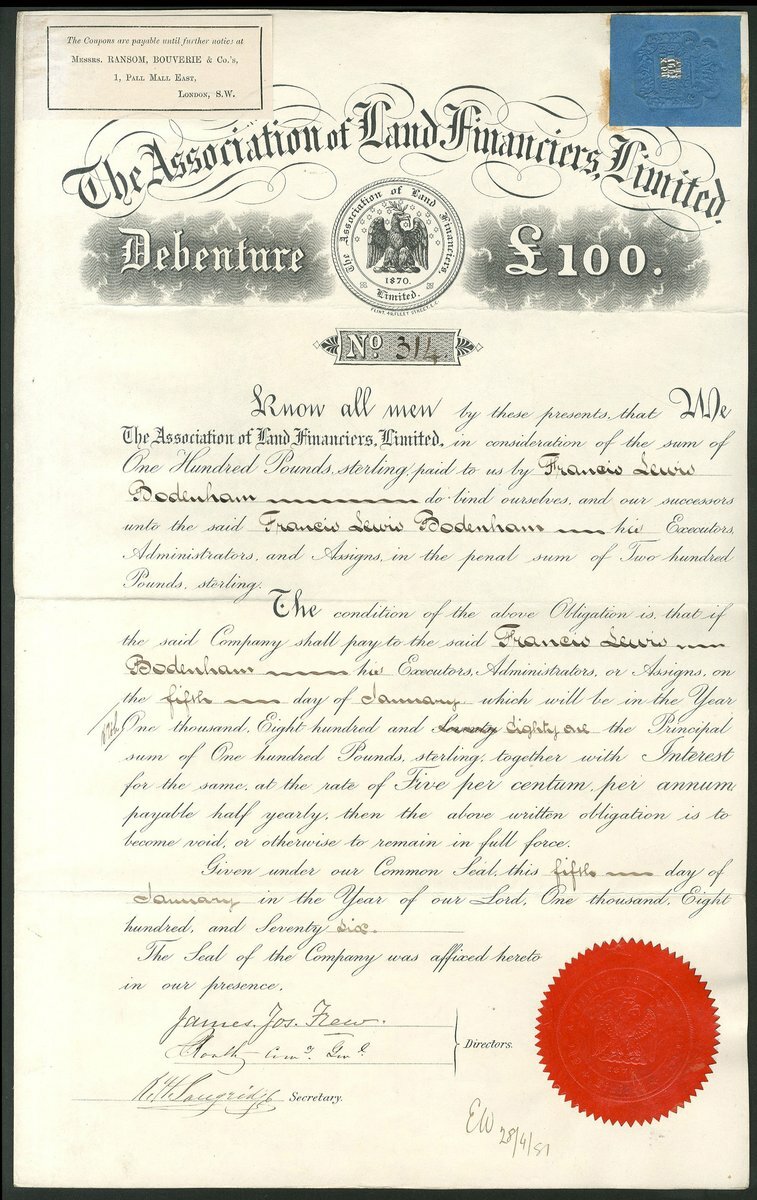 The Coupons are payable until further notice at
Messrs. RANSOM, BOUVERIE & Co.'s,
1, Pall Mall East,
London, S.W.
The Association of Land Financiers, Limited.
Debenture
The Association of Land Financiers,
1870.
Limited.
£100.
FLINT, 49, FLEET STREET, E.C.
No 314
Know all men by these presents, that We
The Association of Land Financiers, Limited, in consideration of the sum of
One Hundred Pounds, sterling, paid to us by Francis Lewis
Bodenham do bind ourselves, and our successors
unto the said Francis Lewis Bodenham his Executors,
Administrators, and Assigns, in the penal sum of Two hundred
Pounds, sterling.
The condition of the above Obligation is, that if
the said Company shall pay to the said Francis Lewis
Bodenham his Executors, Administrators, or Assigns, on
the fifth day of January which will be in the Year
One thousand, Eight hundred and Seventy eighty one the Principal
sum of One hundred Pounds, sterling, together with Interest
for the same, at the rate of Five per centum, per annum,
payable half yearly, then the above written obligation is to
become void, or otherwise to remain in full force.
Given under our Common Seal, this fifth day of
January in the Year of our Lord, One thousand, Eight
hundred, and Seventy six.
The Seal of the Company was affixed hereto
in our presence,
James. Jos. Frew.
Directors.
Secretary.
EW 28/4/81